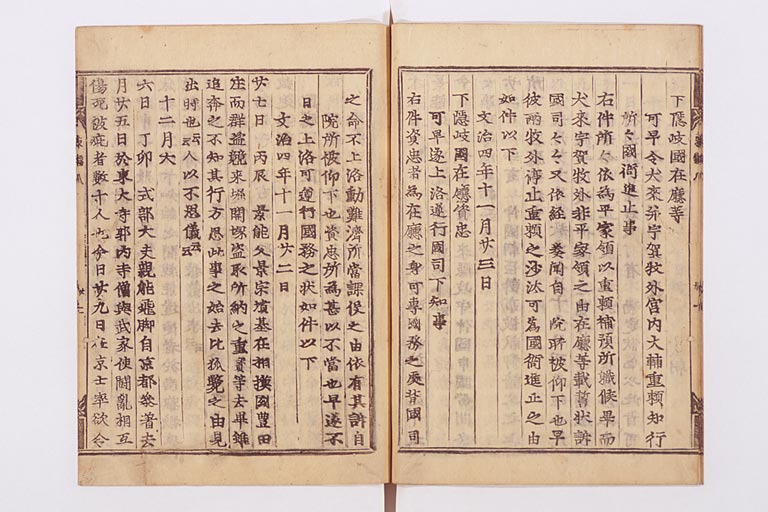 下隱岐國在廳等
可早令犬來幷宇賀牧外宮内大輔重頼知行
所々國衙進止事
右件所々依為平家領以重頼補預所職候畢而
犬來宇賀牧外非平家領之由在廳等載誓状訴
國司々々又依經奏聞自院所被仰下也早
彼兩牧外停止重頼之沙汰可為國衙進止之由
如件以下
文治四年十一月廿三日
下隱岐國在廳資忠
可早遂上洛遵行國司下知事
右件資忠者為在廳之身可專國務之處背國司
之命不上洛動難濟所當課役之由依有其訴自
院所被仰下也資忠所為甚以不當也早遂不
日之上洛可遵行國務之状如件以下
文治四年十一月廿二日
廿七日丙辰景能父景宗墳墓在相摸國豊田
庄而群盗競來堀開塚盗取所納之重寳等去畢雖
追奔之不知其行方思此事之始去比狐斃之由見
出時也云々人以不思儀云々
十二月大
六日丁卯式部大夫親能飛脚自京都參著去
月廿五日於東大寺郭内寺僧與武家使鬪亂相互
傷死被疵者數十人也今日廿九日在京士率欲令